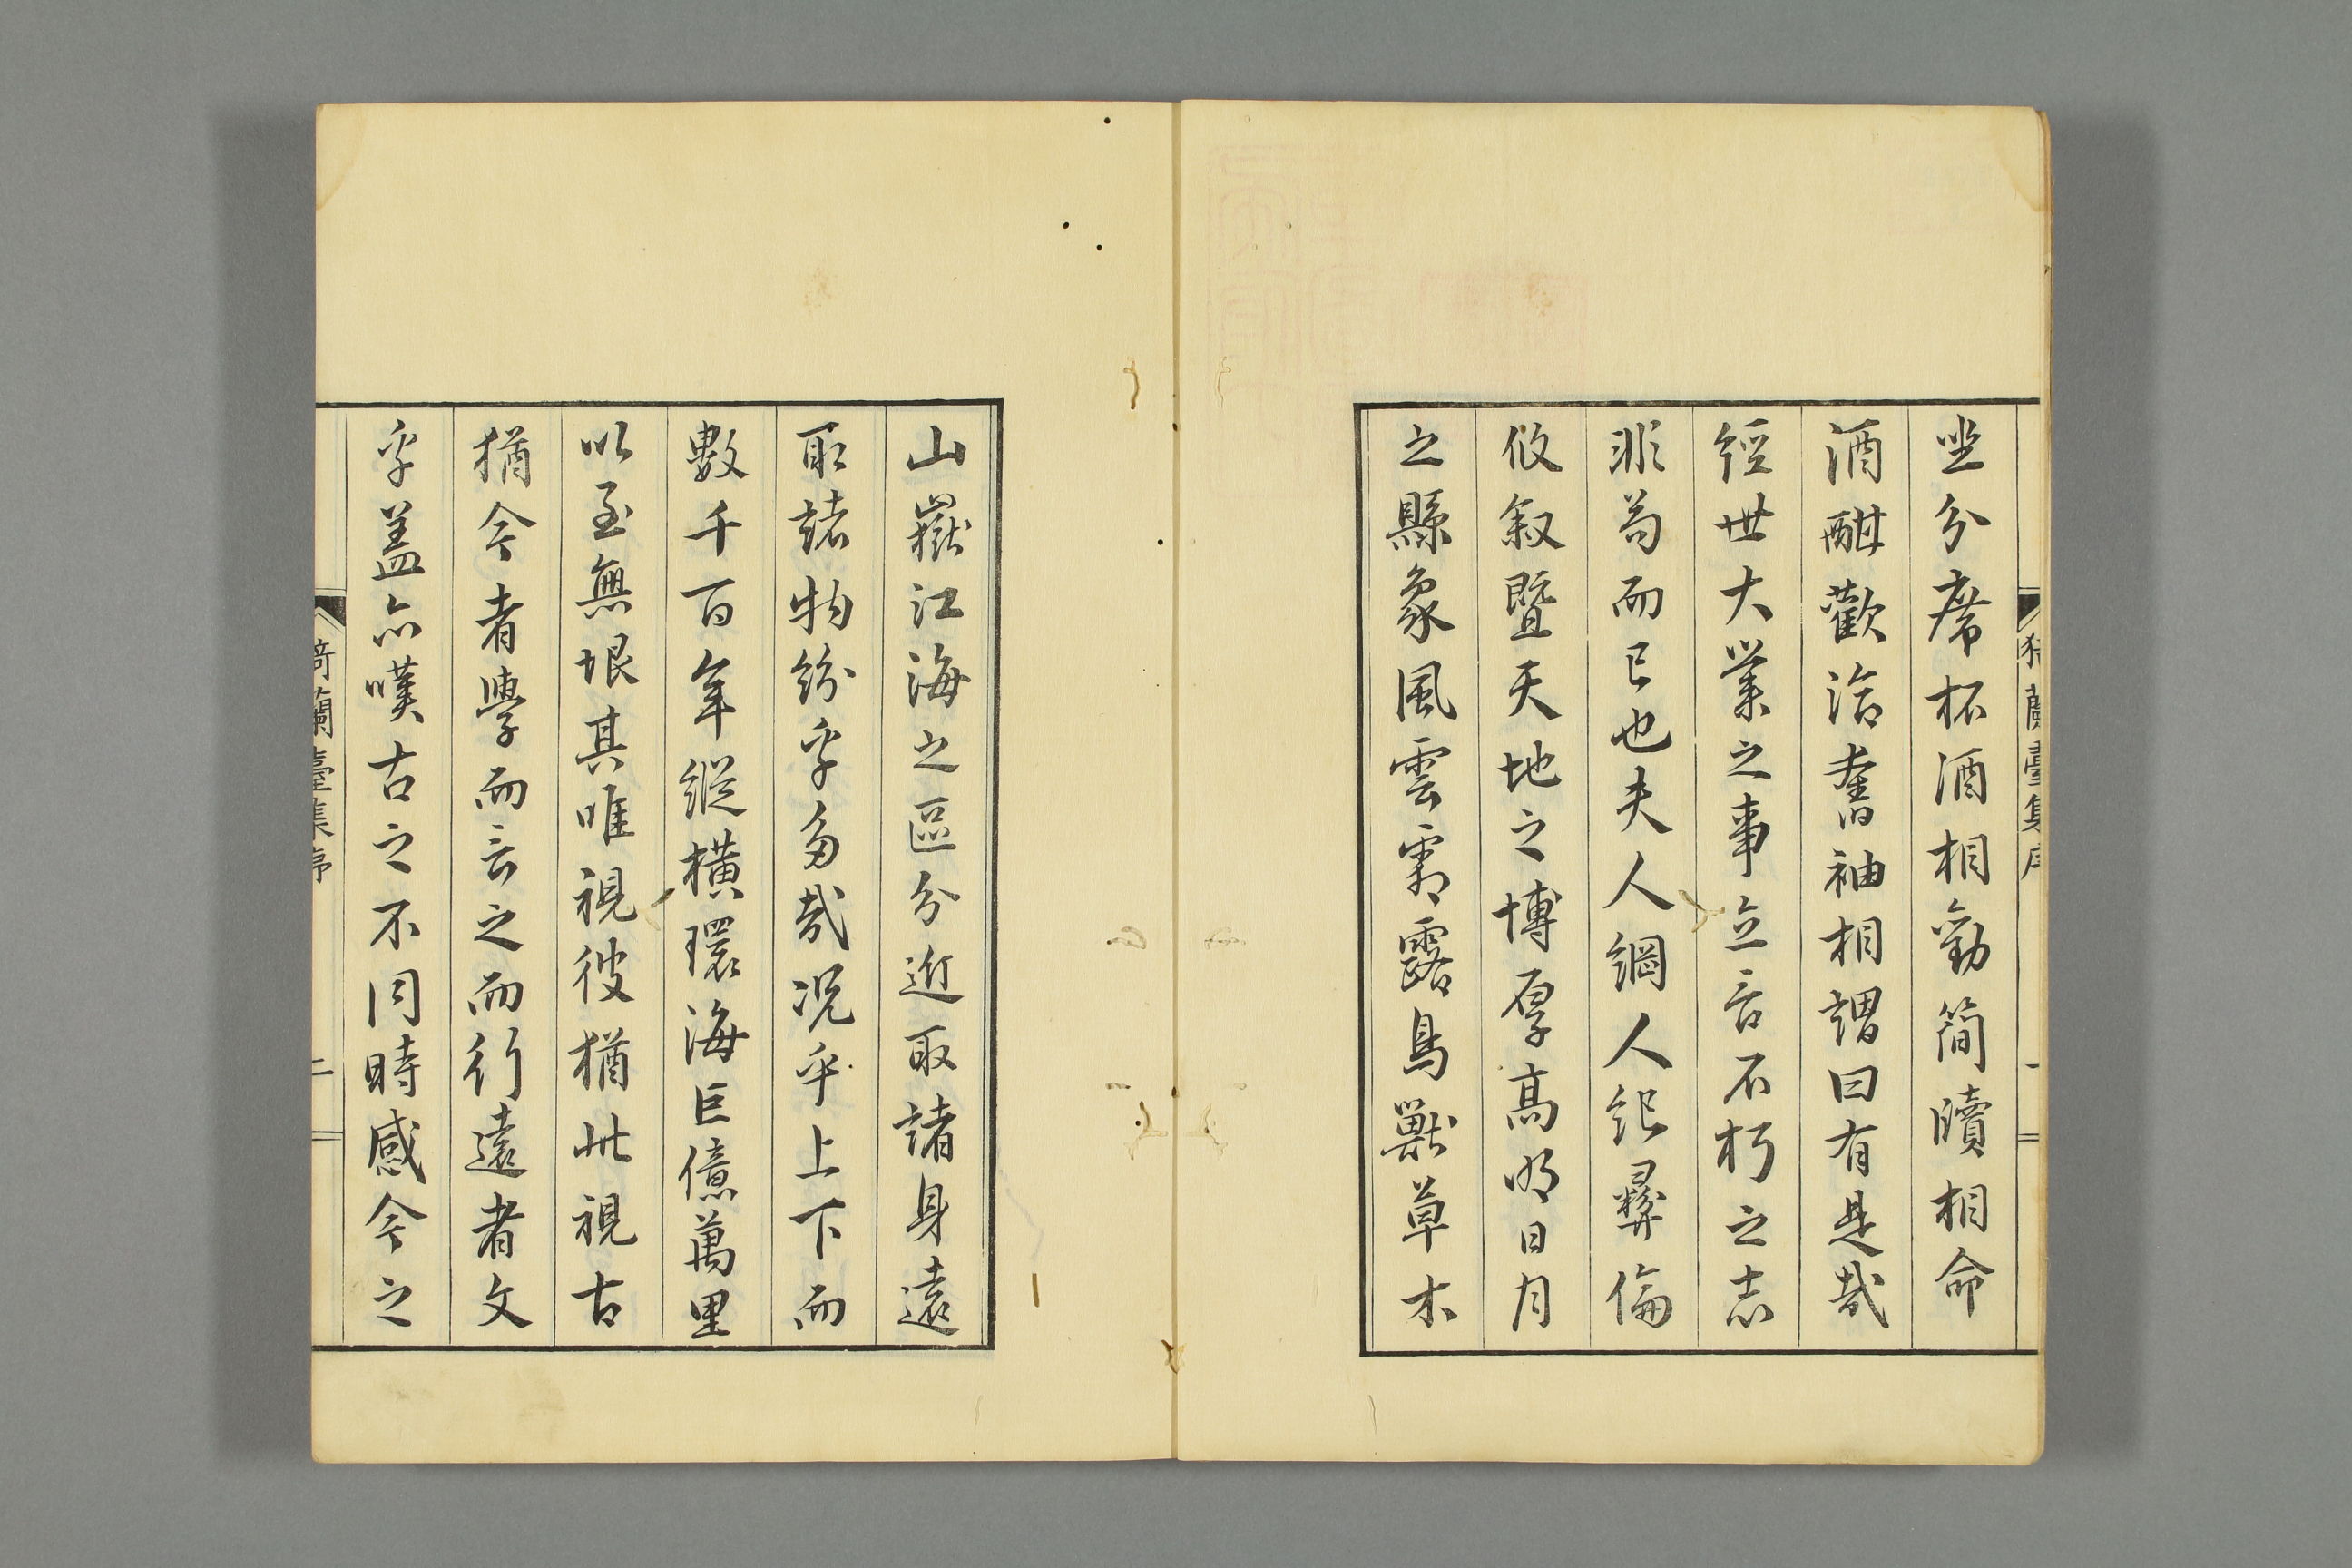 坐分席杯酒相勸簡牘相命
酒酣歡洽奮袖相謂曰有是哉
經世大業之事立言不朽之志
非苟而已也夫人綱人紀彝倫
攸敘暨天地之博厚高明日月
之縣象風雲霜露鳥獸草木
猗蘭臺集序
一
山嶽江海之區分近取諸身遠
取諸物紛乎多哉況乎上下而
數千百年縱橫環海巨億萬里
以至無垠其唯視彼猶此視古
猶今者學而言之而行遠者文
乎蓋亦嘆古之不同時感今之
猗蘭臺集序
二